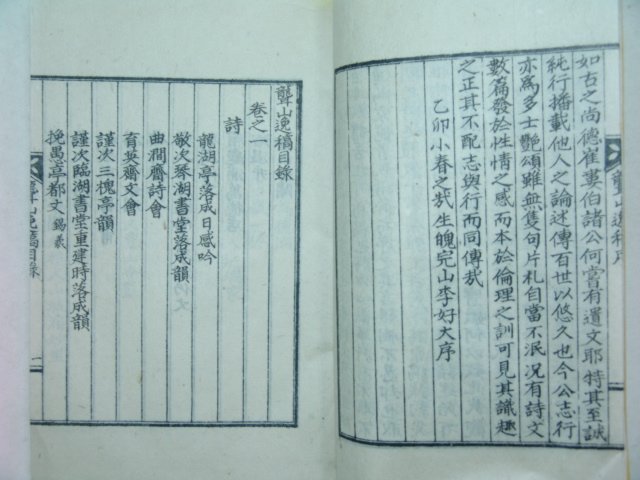 如古之尚德崔婁伯諸公何嘗有遺文耶特其至誠
純行播載他人之論述傳百世以悠久也今公志行
亦爲多士艶頌雖無隻句片札自當不泯況有詩文
數篇發於性情之感而本於倫理之訓可見其識趣
之正其不配志與行而同傳哉
乙卯小春之哉生魄完山李好大序
聾山逸稿目錄
卷之一
詩
龍湖亭落成日感吟
敬次琴湖書堂落成韻
曲澗齋詩會
育英齋文會
謹次三槐亭韻
謹次臨湖書堂重建時落成韻
挽萬亭都文錫羲
聾山逸稿序
聾山逸稿目錄
一